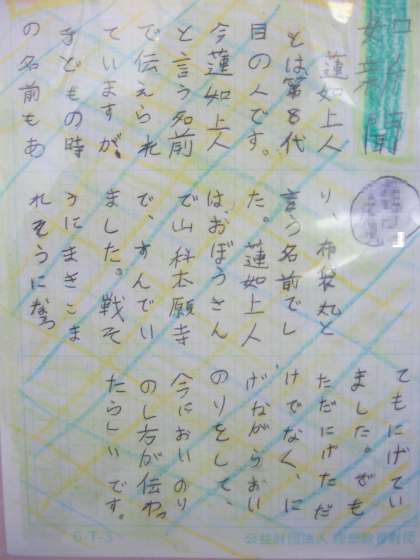 蓮如上人
とは第8代
目の人です。
今蓮如上人
と言う名前
で伝えられ
ていますが、
子どもの時
の名前もあ
り、布袋丸と
言う名前でし
た。蓮如上人
は、おぼうさん
で山科本願寺
で、すんでい
ました。戦そ
うにまきこま
れそうになっ
てもにげてい
ました。でも
ただにげただ
けでなく、に
げながらおい
のりをして、
今においのり
のし方が伝わっ
たらしいです。
6.T-3
公益財団法人 理想教育財団